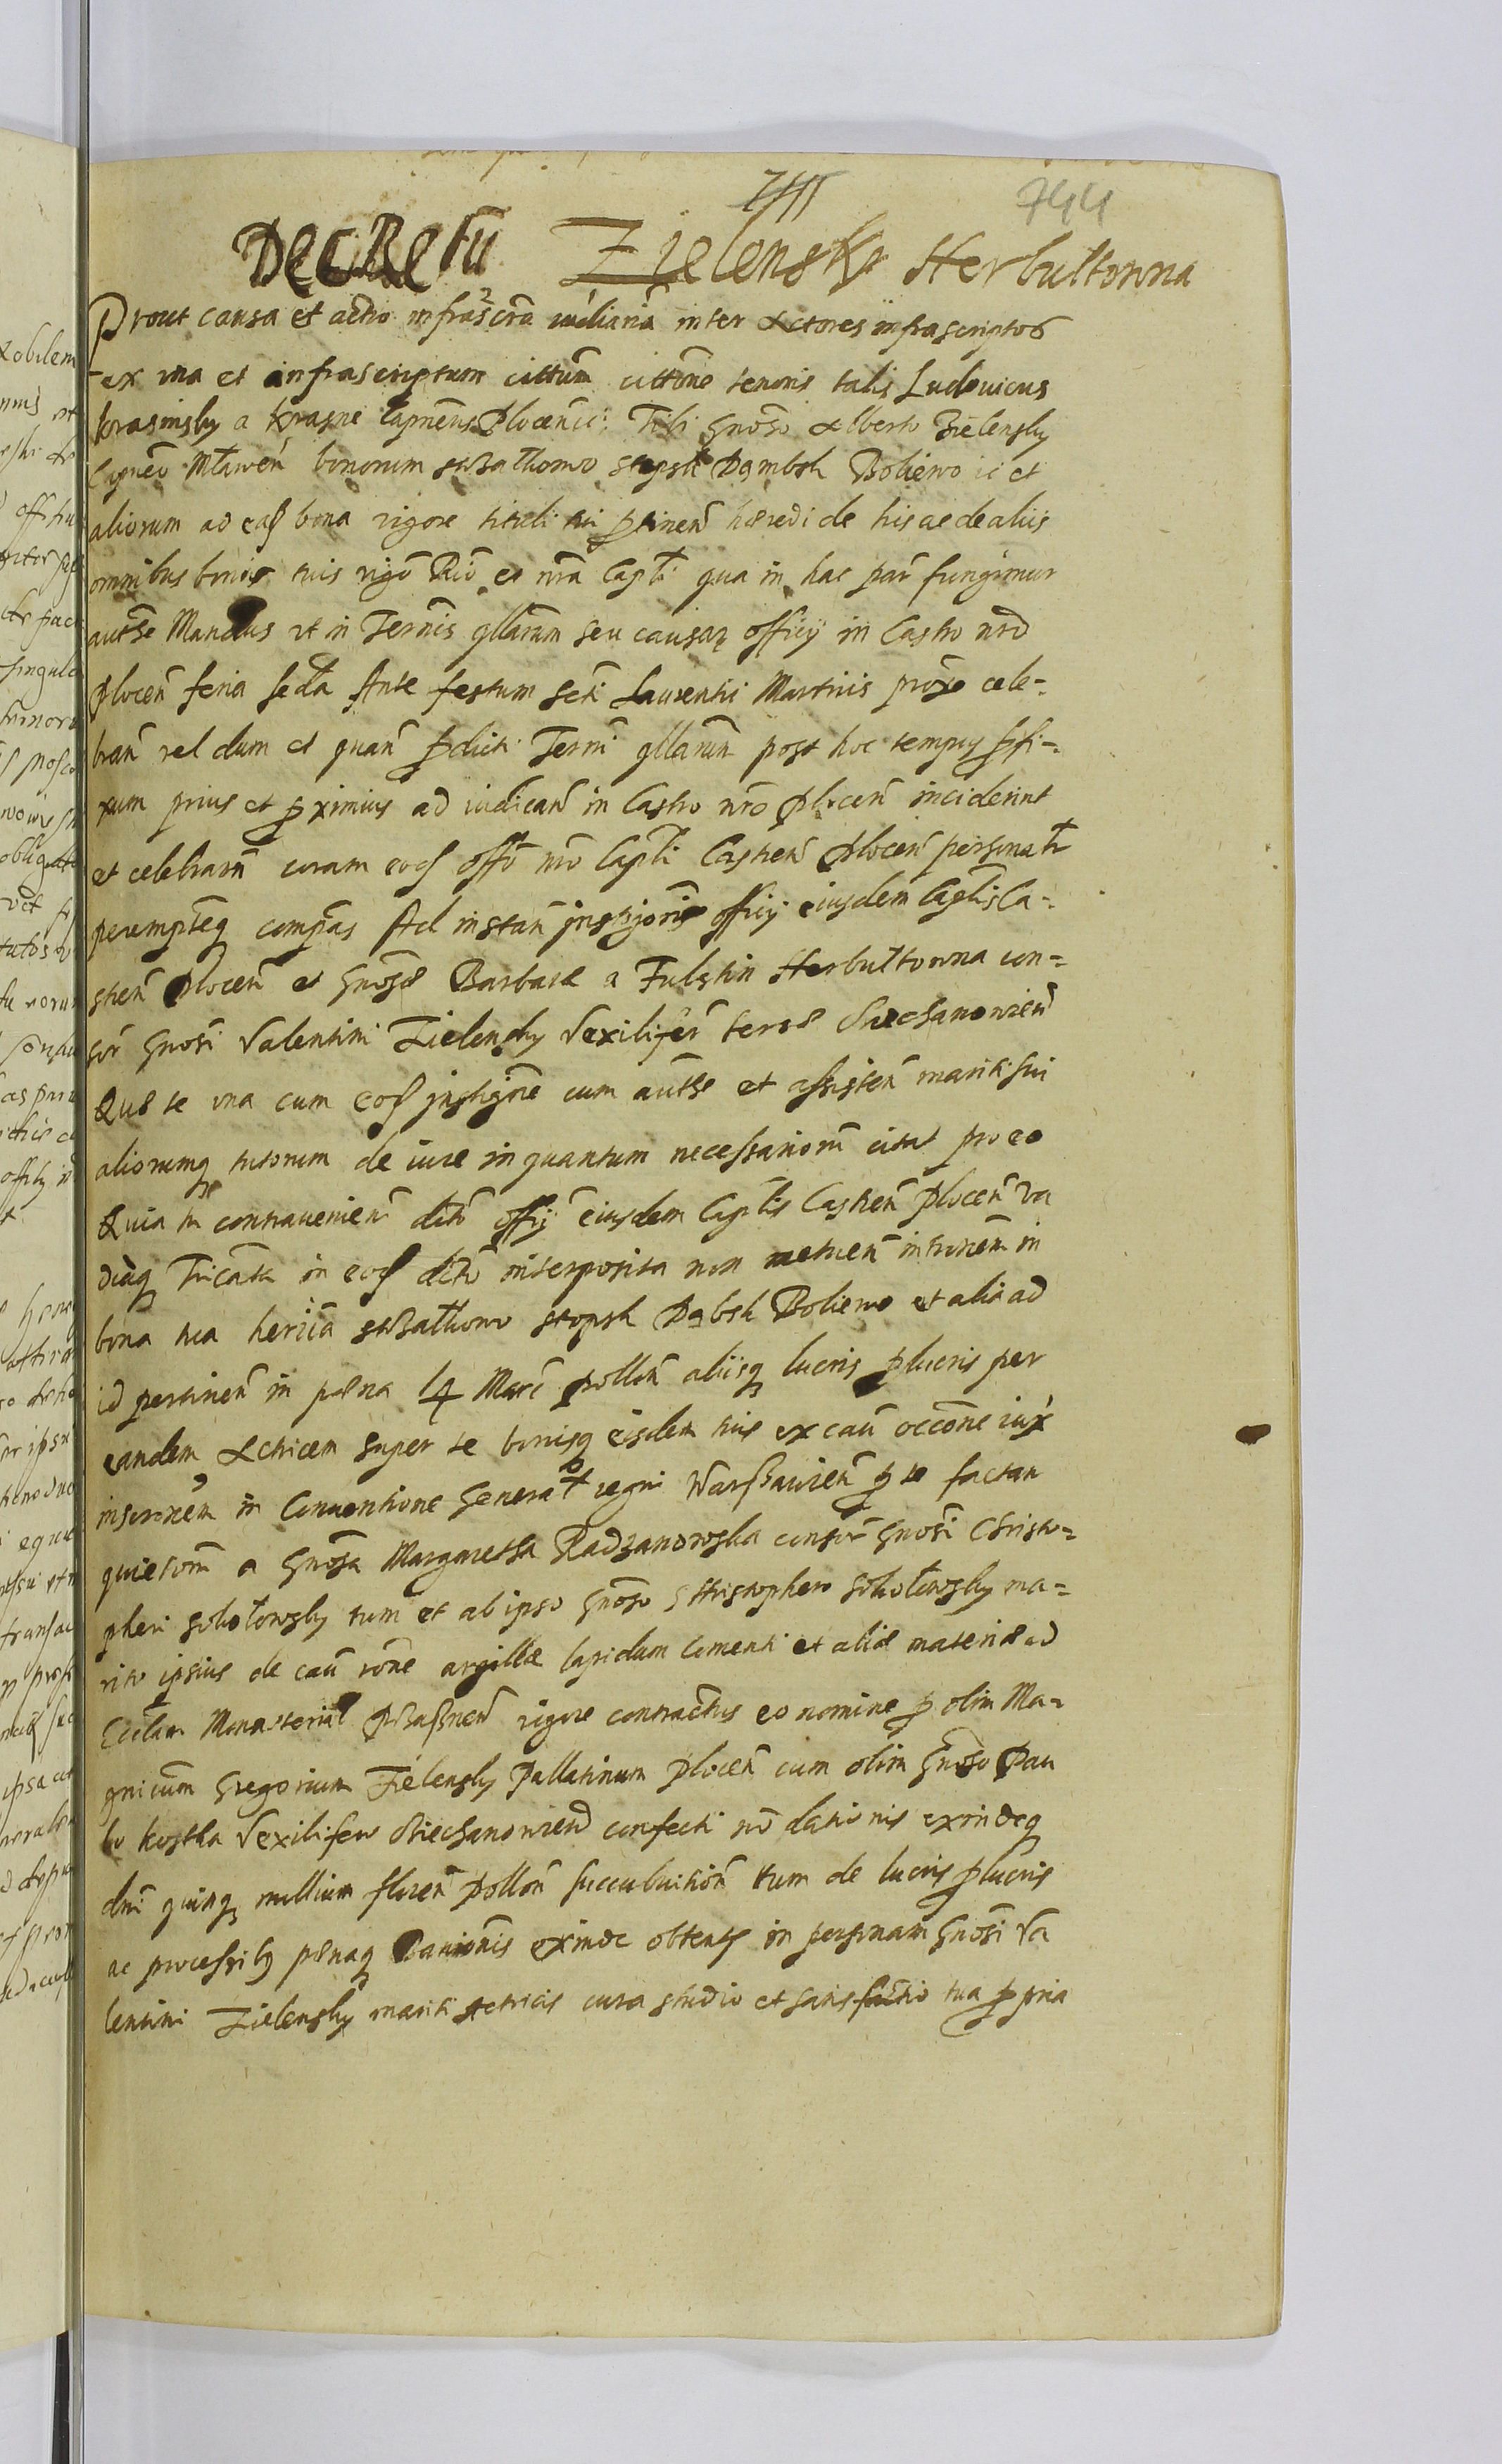 744
Decretũ Zielensky Herbultowna
Prout causa et actio infrascrã iudiciariã inter Actores infrascriptos
ex una et infrascriptum cittum cittõne tenoris talis Ludovicus
Krasinsky a Krasne Capneus Plocensis Tibi Gnõso Alberto Zielensky
Capneo Mławeñ bonorum stopsk Dąmbsk Boliewo ic et
aliorum ad eaſ bona vigore tituli tui ptineñ hæredi de his ac de aliis
omnibus bonis tuis vigõ et nrã Capli qua in hac par̃ fungimur
auttẽ Mandãus ut in Termĩs qllarum seu causar officÿ in Castro nrõ
Ploceñ feria secda Ante festum Scti Laurentii Martiris proxe cele=
brañ vel dum et quañ pdicti Termi qllarum post hoc tempus pfi=
xum prius et pximius ad iudicañ in Castro nrõ Ploceñ inciderint
et celebrarñ coram eoſ offõ nrõ Capli Castreñ Ploceñ personaltr
peremptẽq compãs Ad instañ instigoris officÿ eiusdem Caplis Ca=
streñ Ploceñ et Gnõsæ Barbaræ a Fulstin Herbultowna con=
sor Gnõsi Valentini Zielensky Vexiliferi terræ Ciechanowieñ
Quæ te una cum eoſ instigõre cum auttẽ et assisteñ mariti sui
aliorumq tutorum de iure in quantum necessariorũ citat pro eo
Quia tu contravenieñ dcto officÿ eiusdem Caplis Castreñ Ploceñ va
diaq in eoſ dcto interposita non metueñ intromẽ in
bona tua stopsk Dąbsk Boliewo et alia ad
id pertineñ in pæna 14 Marc polloñ aliisq lucris plucris per
eandem Actricem super te bonisq eisdem tuis ex caũ occõne iuxˋ
inscronem in Conventione Generał regni Warssavieñ p te factan
quietoru a Gnõsa Margaretha Radzanowska consor̃ Gnõsi Christo=
pheri sokołowsky tum et ab ipso Gnõso Christophero sokołowsky ma=
rito ipsius de caũ rõne argillæ lapidum Cementi et aliæ materiæ ad
Ecclam Monasterial vigore contractus eo nomine p olim Ma=
gnicum Gregorium Zielensky Pallatinum Ploceñ cum olim Gnõso Pau
lo Kostka Vexilifero Ciechanowieñ confecti nõ dationis exindeq
dni quinq millium floreñ polloñ succubuitioñ tum de lucris plucris
ac processibq pænaq exinde obtentis in personam Gnõsi Va
lentini Zielensky mariti Actricis cura studio et satisfactio tua ppria